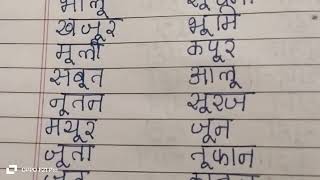 भालू
खजूर भूमि
मूली कपूर
सबूत आलू
नूतन सूरज
मयूर जून
जूता तूफान